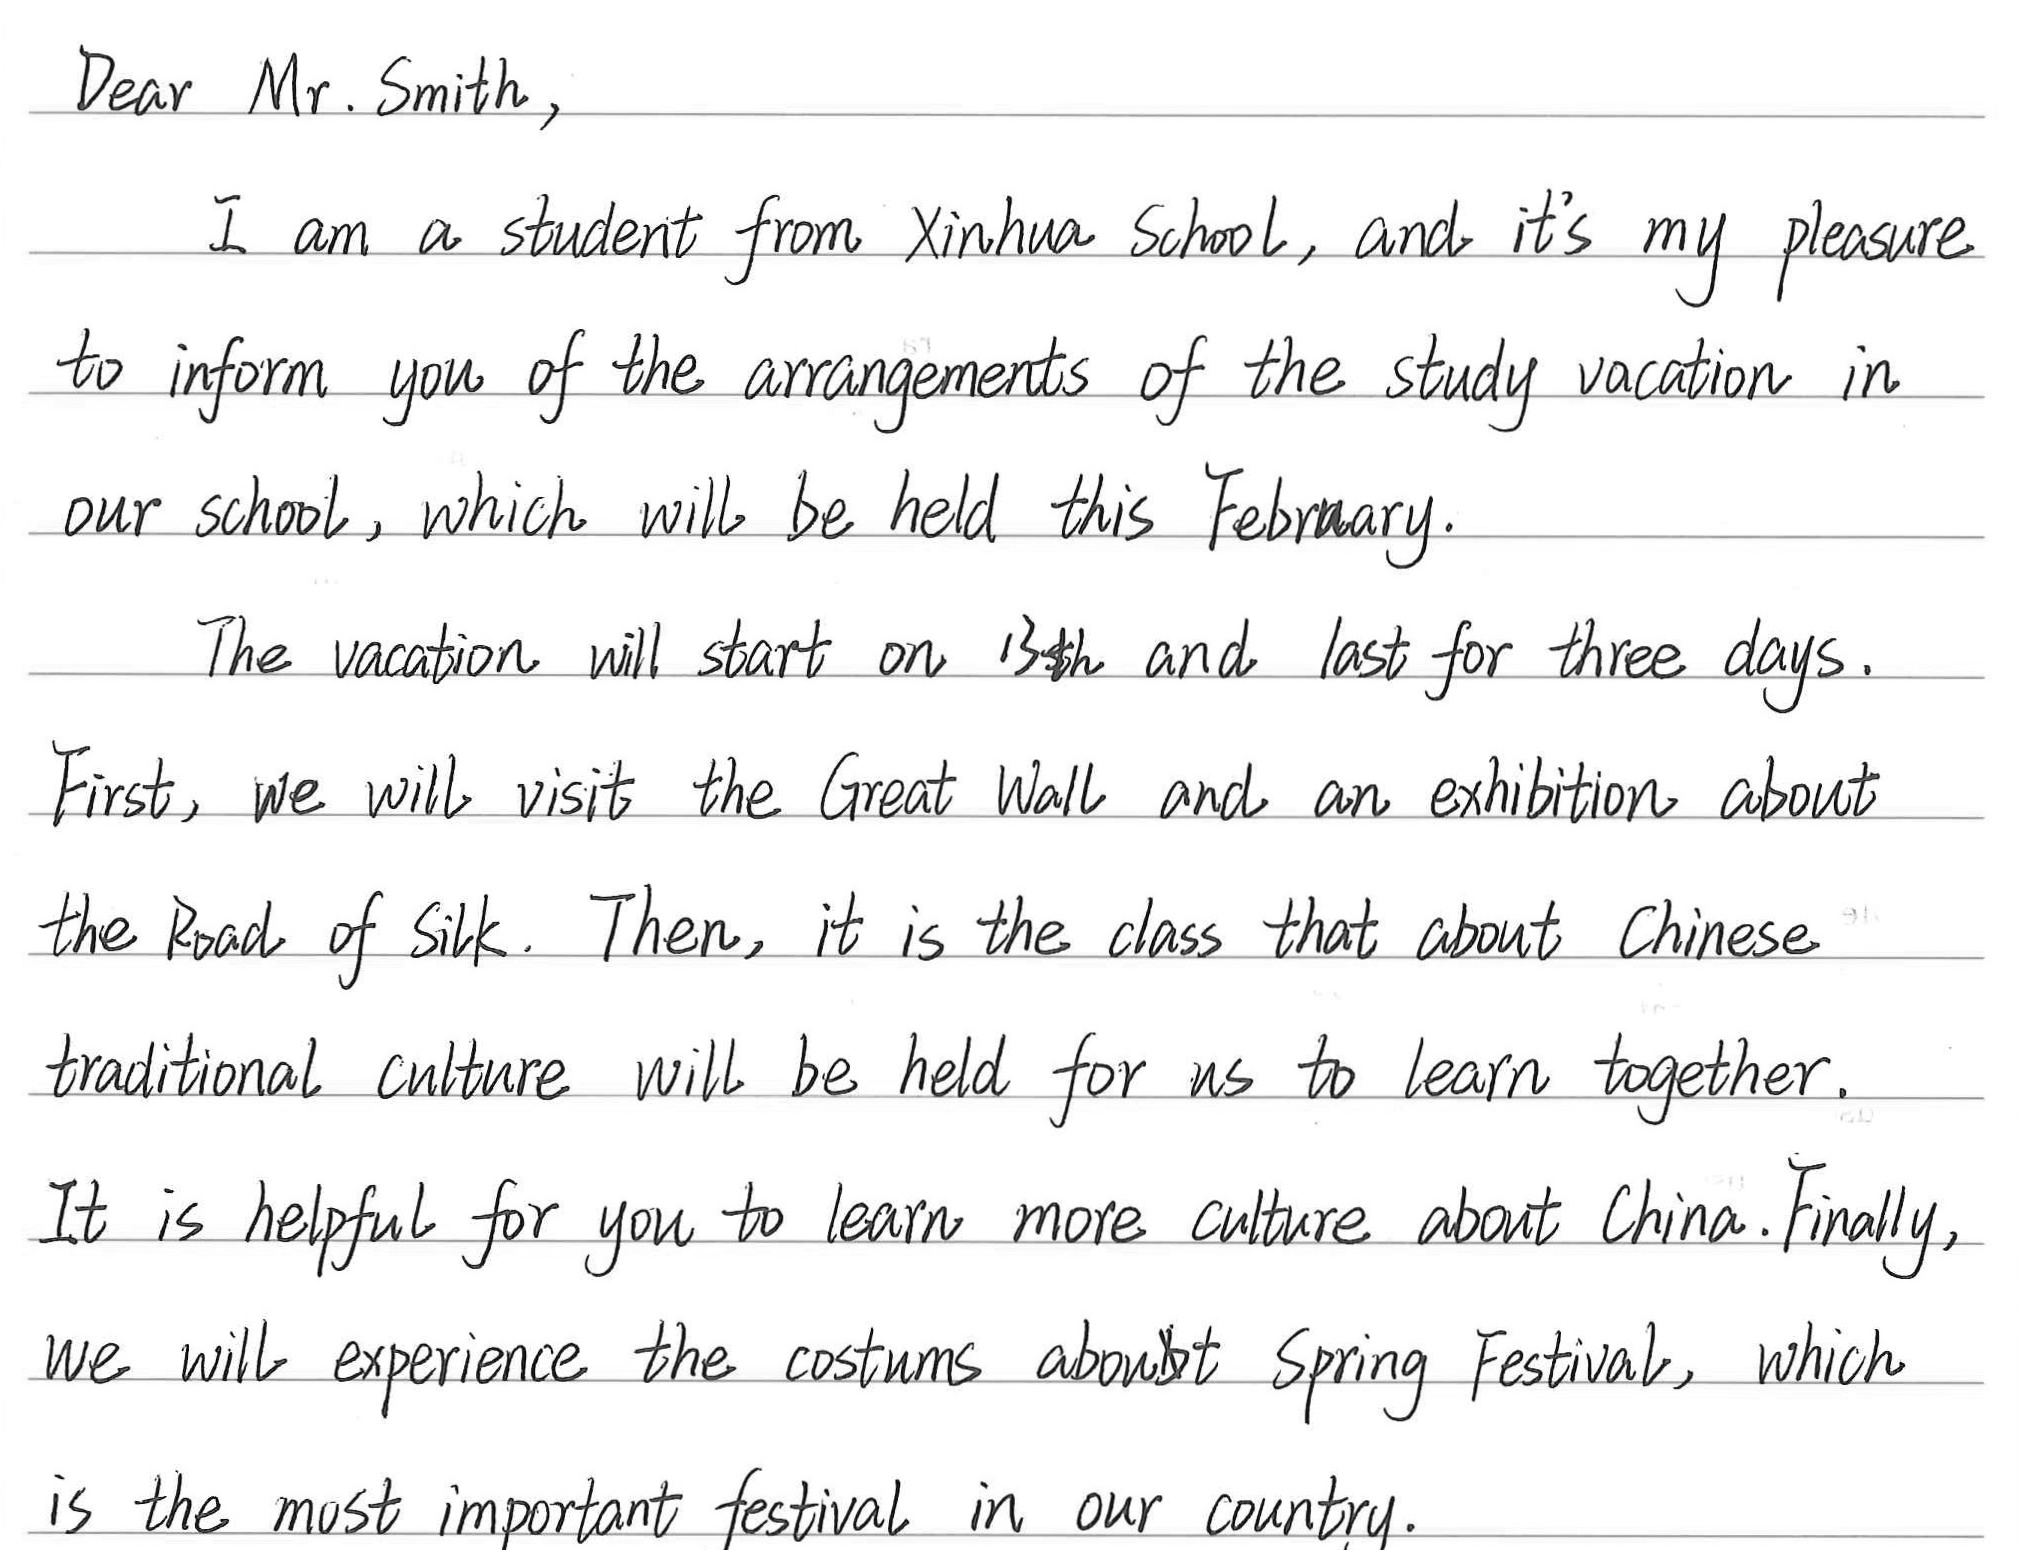 Dear Mr. Smith,
I am a student from Xinhua School, and it's my pleasure
to inform you of the arrangements of the study vacation in
our school, which will be held this February.
The vacation will start on 13th and last for three days.
First, we will visit the Great Wall and an exhibition about
the Road of Silk. Then, it is the class that about Chinese
traditional culture will be held for us to learn together.
It is helpful for you to learn more culture about China. Finally,
we will experience the costums about Spring Festival, which
is the most important festival in our country.